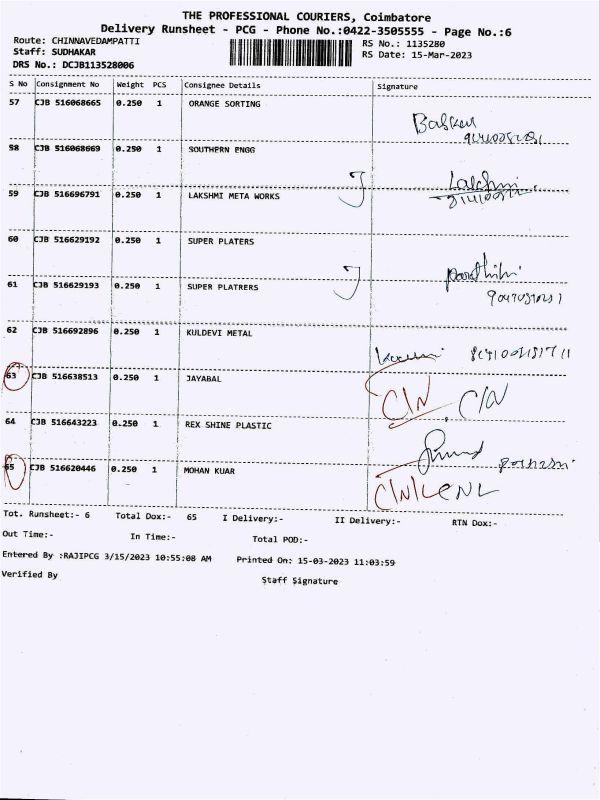 THE PROFESSIONAL COURIERS, Coimbatore
Delivery Runsheet - PCG - Phone No.:0422-3505555 - Page No.:6
Route: CHINNAVEDAMPATTI
RS No.: 1135280
Staff: SUDHAKAR
RS Date: 15-Mar-2023
DRS No.: DCJB113528006
S No Consignment No Weight PCS Consignee Details Signature
57 CJB 516068665 0.250 1 ORANGE SORTING
Baskar
58 CJB 516068669 0.250 1 SOUTHERN ENGG
Lakshmi
59 CJB 516696791 0.250 1 LAKSHMI META WORKS
60 CJB 516629192 0.250 1 SUPER PLATERS
61 CJB 516629193 0.250 1 SUPER PLATRERS
62 CJB 516692896 0.250 1 KULDEVI METAL
63 CJB 516638513 0.250 1 JAYABAL
C/N, C/N
64 CJB 516643223 0.250 1 REX SHINE PLASTIC
65 CJB 516620446 0.250 1 MOHAN KUAR
Tot. Runsheet:- 6 Total Dox:- 65 I Delivery:- II Delivery:- RTN Dox:-
Out Time:- In Time:- Total POD:-
Entered By :RAJIPCG 3/15/2023 10:55:08 AM Printed On: 15-03-2023 11:03:59
Verified By Staff Signature